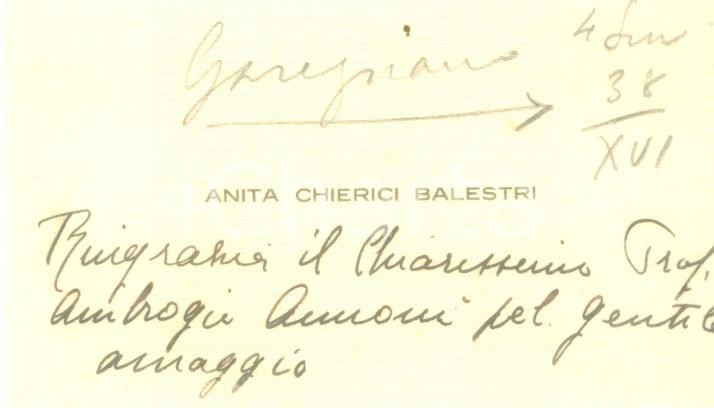 Garegnano
4 Giu
38
XVI
ANITA CHIERICI BALESTRI
Ringrazia il Chiarissimo Prof.
Ambrogio Annoni pel gentile
omaggio